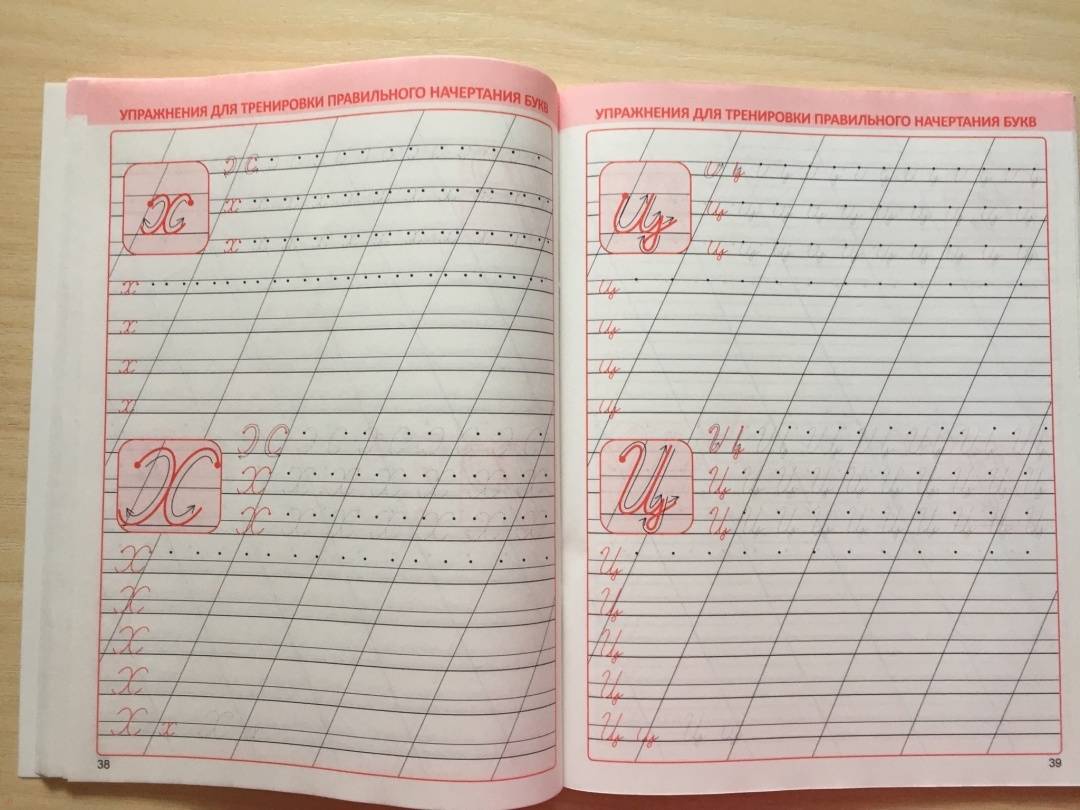 УПРАЖНЕНИЯ ДЛЯ ТРЕНИРОВКИ ПРАВИЛЬНОГО НАЧЕРТАНИЯ БУКВ
х
х
х
х
х
х
х
Х
Х
Х
Х
Х
Х
Х
Х х
38
УПРАЖНЕНИЯ ДЛЯ ТРЕНИРОВКИ ПРАВИЛЬНОГО НАЧЕРТАНИЯ БУКВ
ц
ц
ц
ц
ц
ц
ц
Ц
Ц
Ц
Ц
Ц
Ц
Ц
Ц ц
39